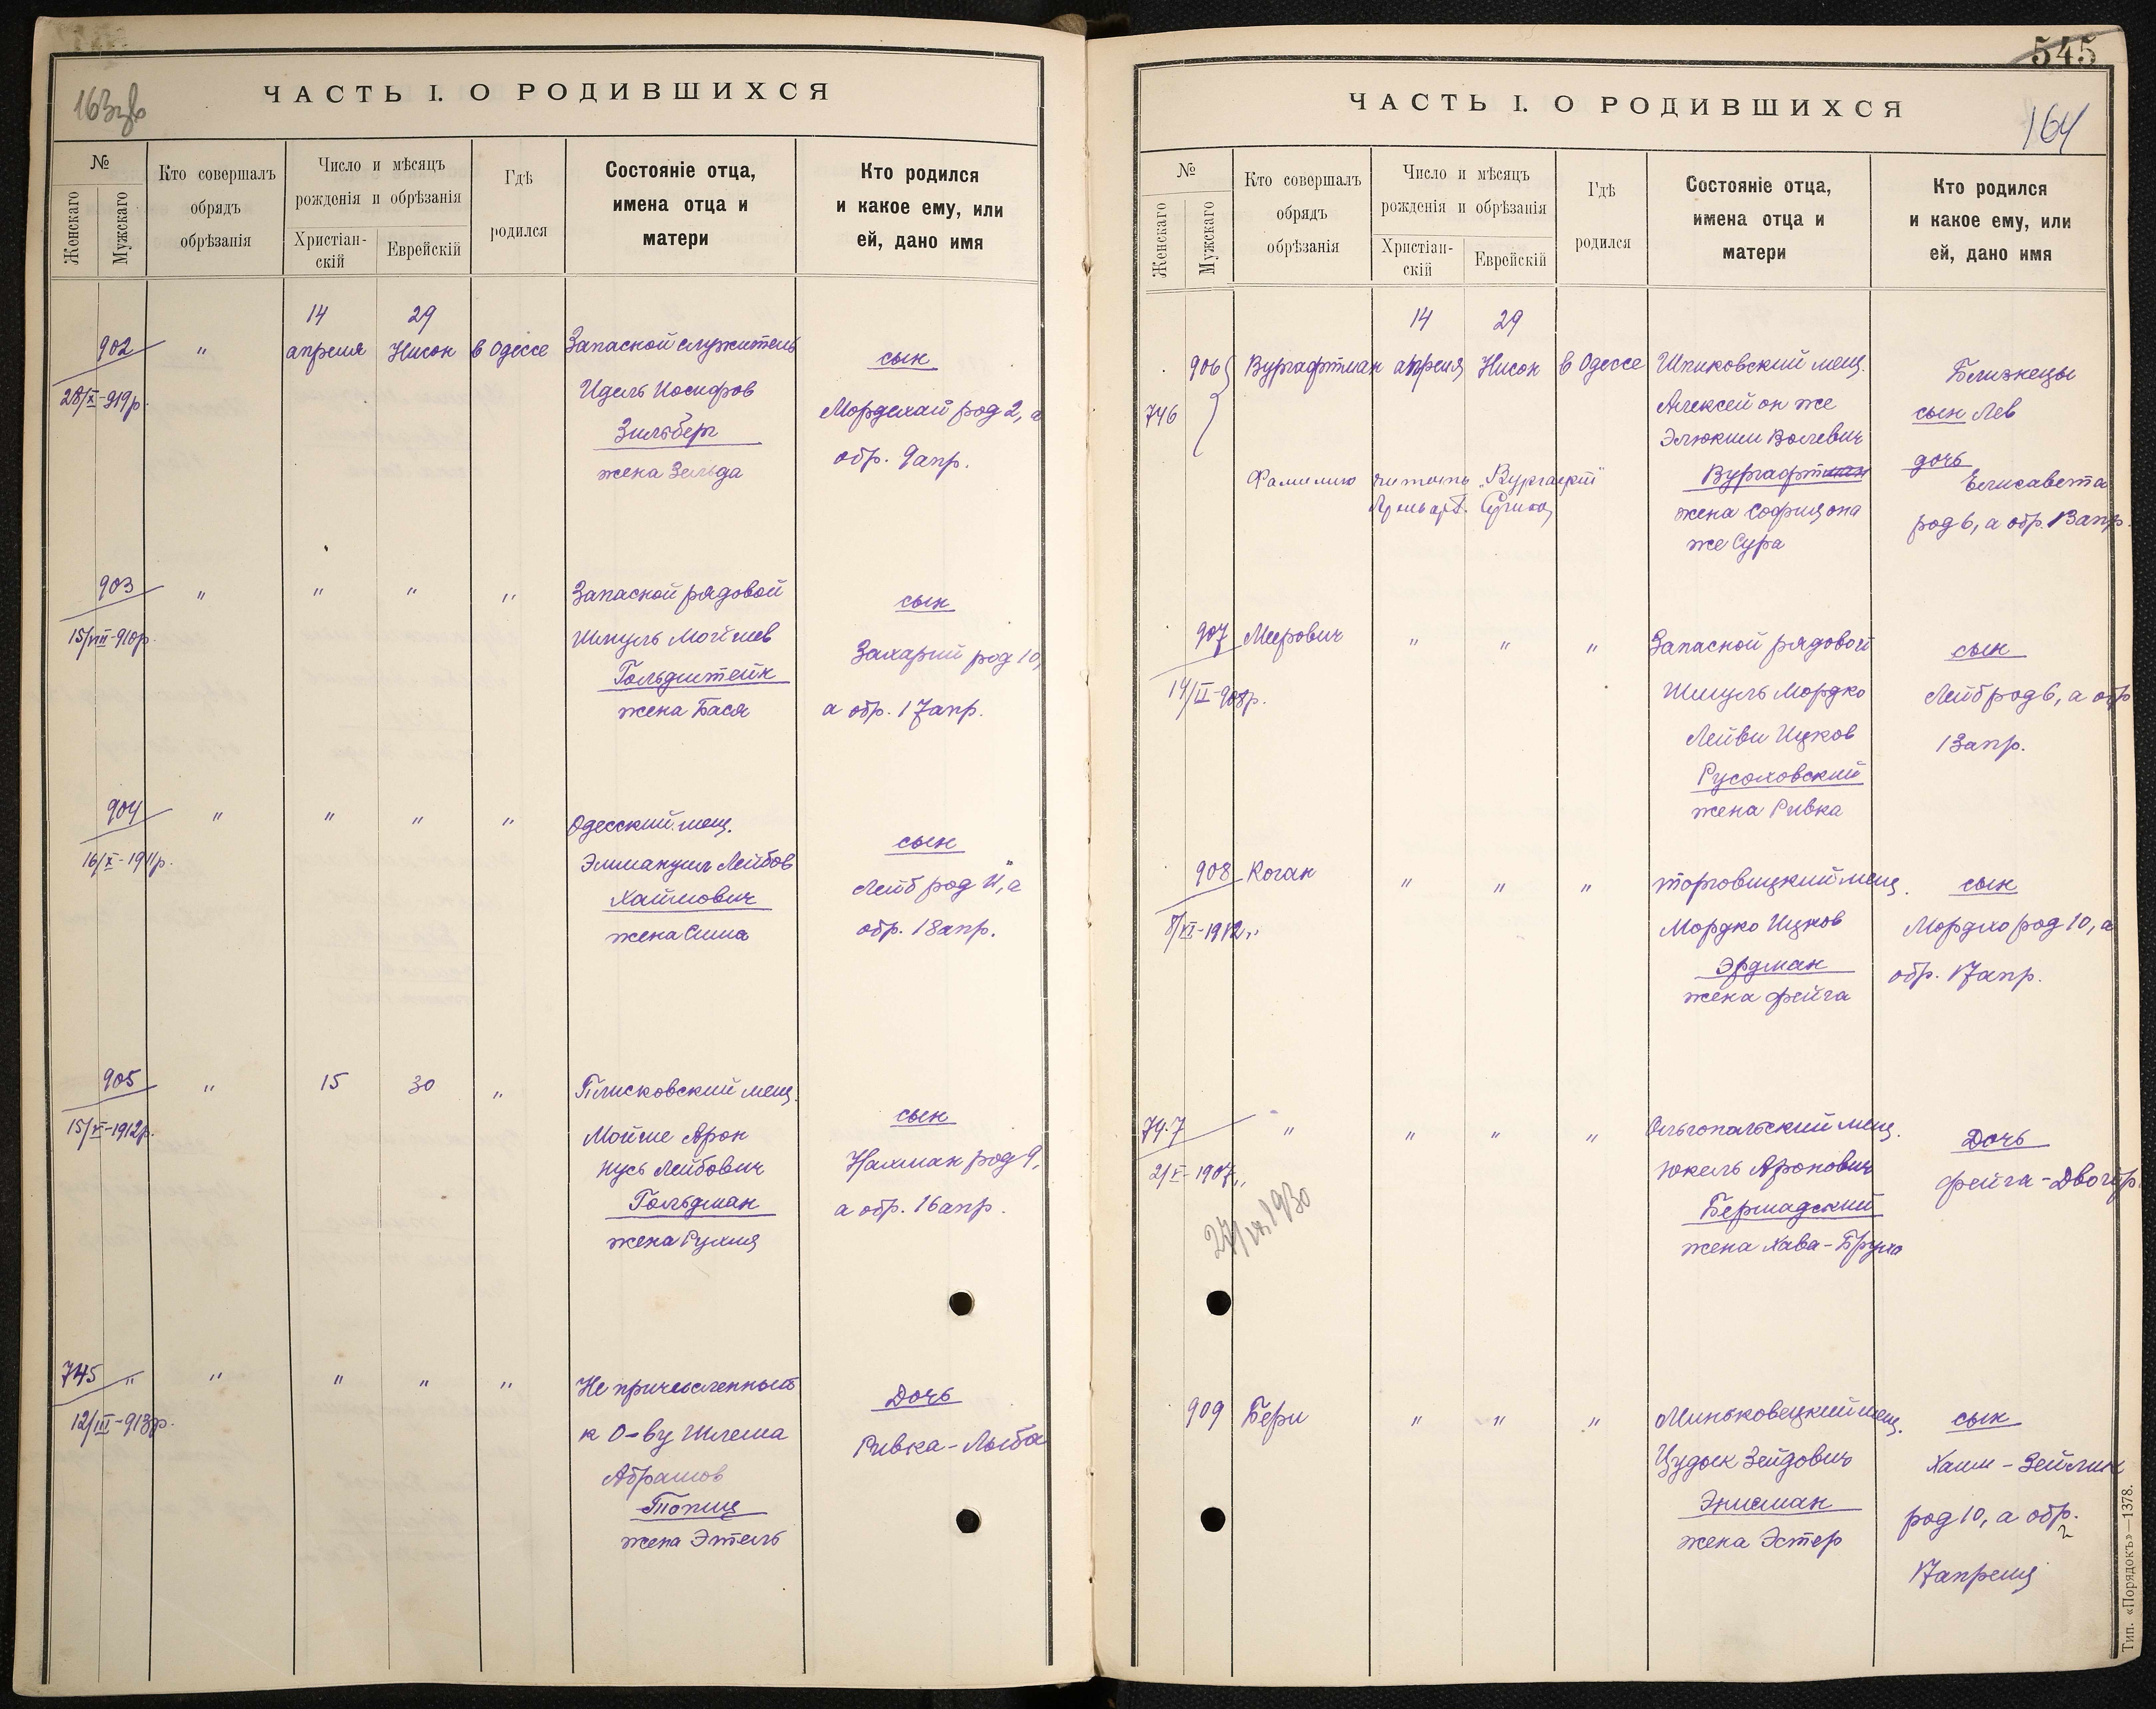 163 об
ЧАСТЬ I. О РОДИВШИХСЯ
№
Женскаго
Мужскаго
Кто совершалъ
обрядъ
обрѣзанія
Число и мѣсяцъ
рожденія и обрѣзанія
Христіан-
скій
Еврейскій
Гдѣ
родился
Состояніе отца,
имена отца и
матери
Кто родился
и какое ему, или
ей, дано имя
902 " 14 апреля 29 Нисон в Одессе
28/X-919р.
Запасной служитель
Идель Иосифов
Зильберг
жена Зельда
сын
Мордехай род 2, а
обр. 9 апр.
903 " " " "
15/VIII-910р.
Запасной рядовой
Шмуль Мойшев
Гольдштейн
жена Бася
сын
Захарий род 10,
а обр. 17 апр.
904 " " " "
16/X-1911р.
Одесский мещ.
Эммануил Лейбов
Хаимович
жена Сима
сын
Лейб род 11, а
обр. 18 апр.
905 " 15 30 "
15/V-1912р.
Плисковский мещ.
Мойше Арон
Нусь Лейбович
Гольдман
жена Рухля
сын
Нахман род 9,
а обр. 16 апр.
745 " " " " "
12/III-913р.
Не причисленный
к О-ву Шлема
Абрамов
жена Этель
Дочь
Ривка-Лыба
545
164
ЧАСТЬ I. О РОДИВШИХСЯ
№
Женскаго
Мужскаго
Кто совершалъ
обрядъ
обрѣзанія
Число и мѣсяцъ
рожденія и обрѣзанія
Христіан-
скій
Еврейскій
Гдѣ
родился
Состояніе отца,
имена отца и
матери
Кто родился
и какое ему, или
ей, дано имя
906 Вургафтман 14 апреля 29 Нисон в Одессе
746
Фамилию читать "Вургафт"
Шпиковский мещ.
Алексей он же
Элюким Волевич
Вургафтман
жена София она
же Сура
Близнецы
сын Лев
дочь
Елисавета
род 6, а обр. 13 апр.
907 Меерович " " "
14/II-908р.
Запасной рядовой
Шмуль Мордко
Лейви Ицков
Русаковский
жена Ривка
сын
Лейб род 6, а обр
13 апр.
908 Коган " " "
8/XI-1912
Торговицкий мещ.
Мордко Ицков
Эрдман
жена Фейга
сын
Мордко род 10, а
обр. 17 апр.
747 " " " "
2/X-1907
27/VII 1930
Ольгопольский мещ.
Юкель Аронович
Бершадский
жена Хава-Бруха
Дочь
Фейга-Двойр.
909 Бери " " "
Миньковецкий мещ.
Цудык Зейдович
Энисман
жена Эстер
сын
Хаим-Зейлик
род 10, а обр.
17 апреля
Тип. «Порядокъ»—1378.